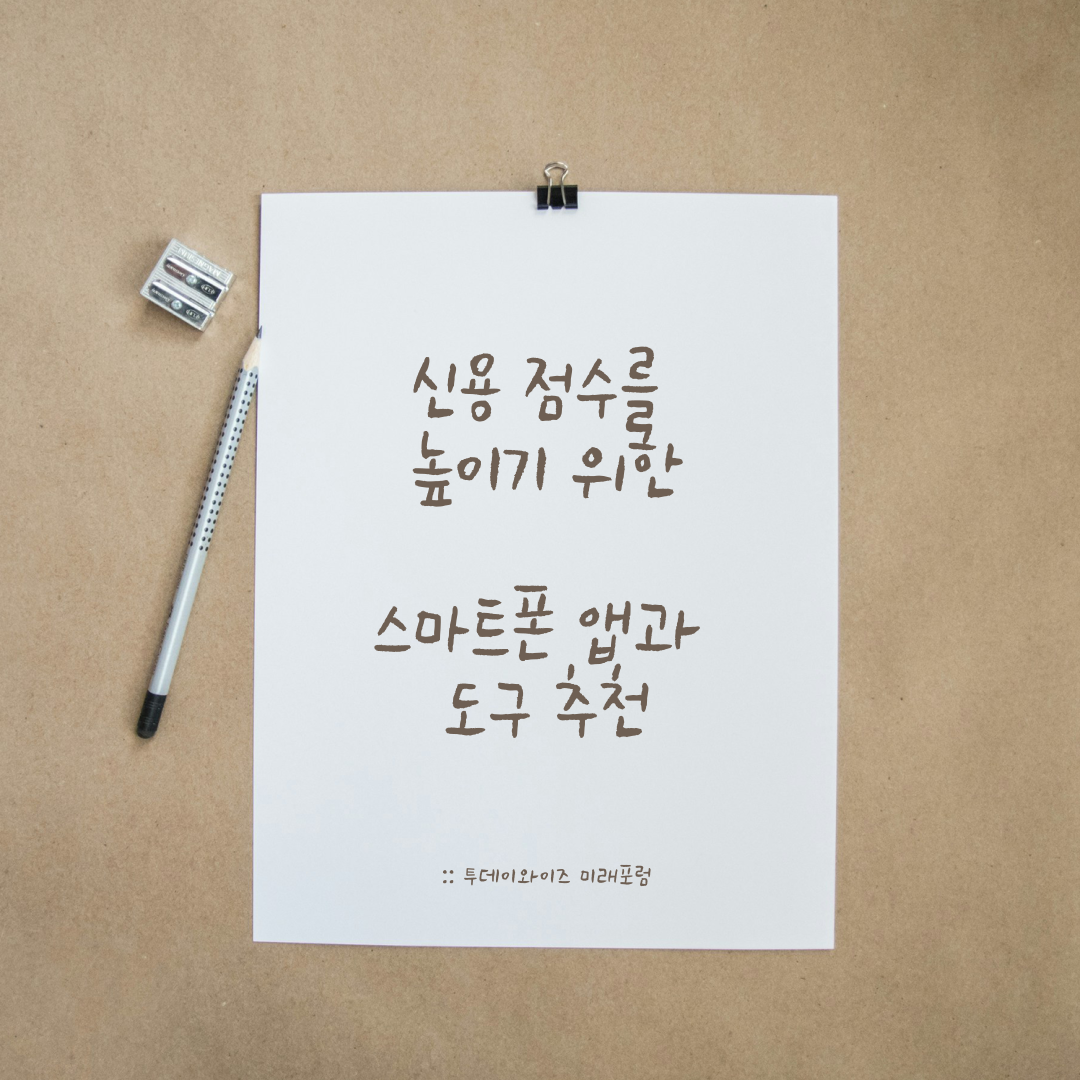 신용 점수를
높이기 위한
스마트폰 앱과
도구 추천
:: 투데이와이즈 미래포럼